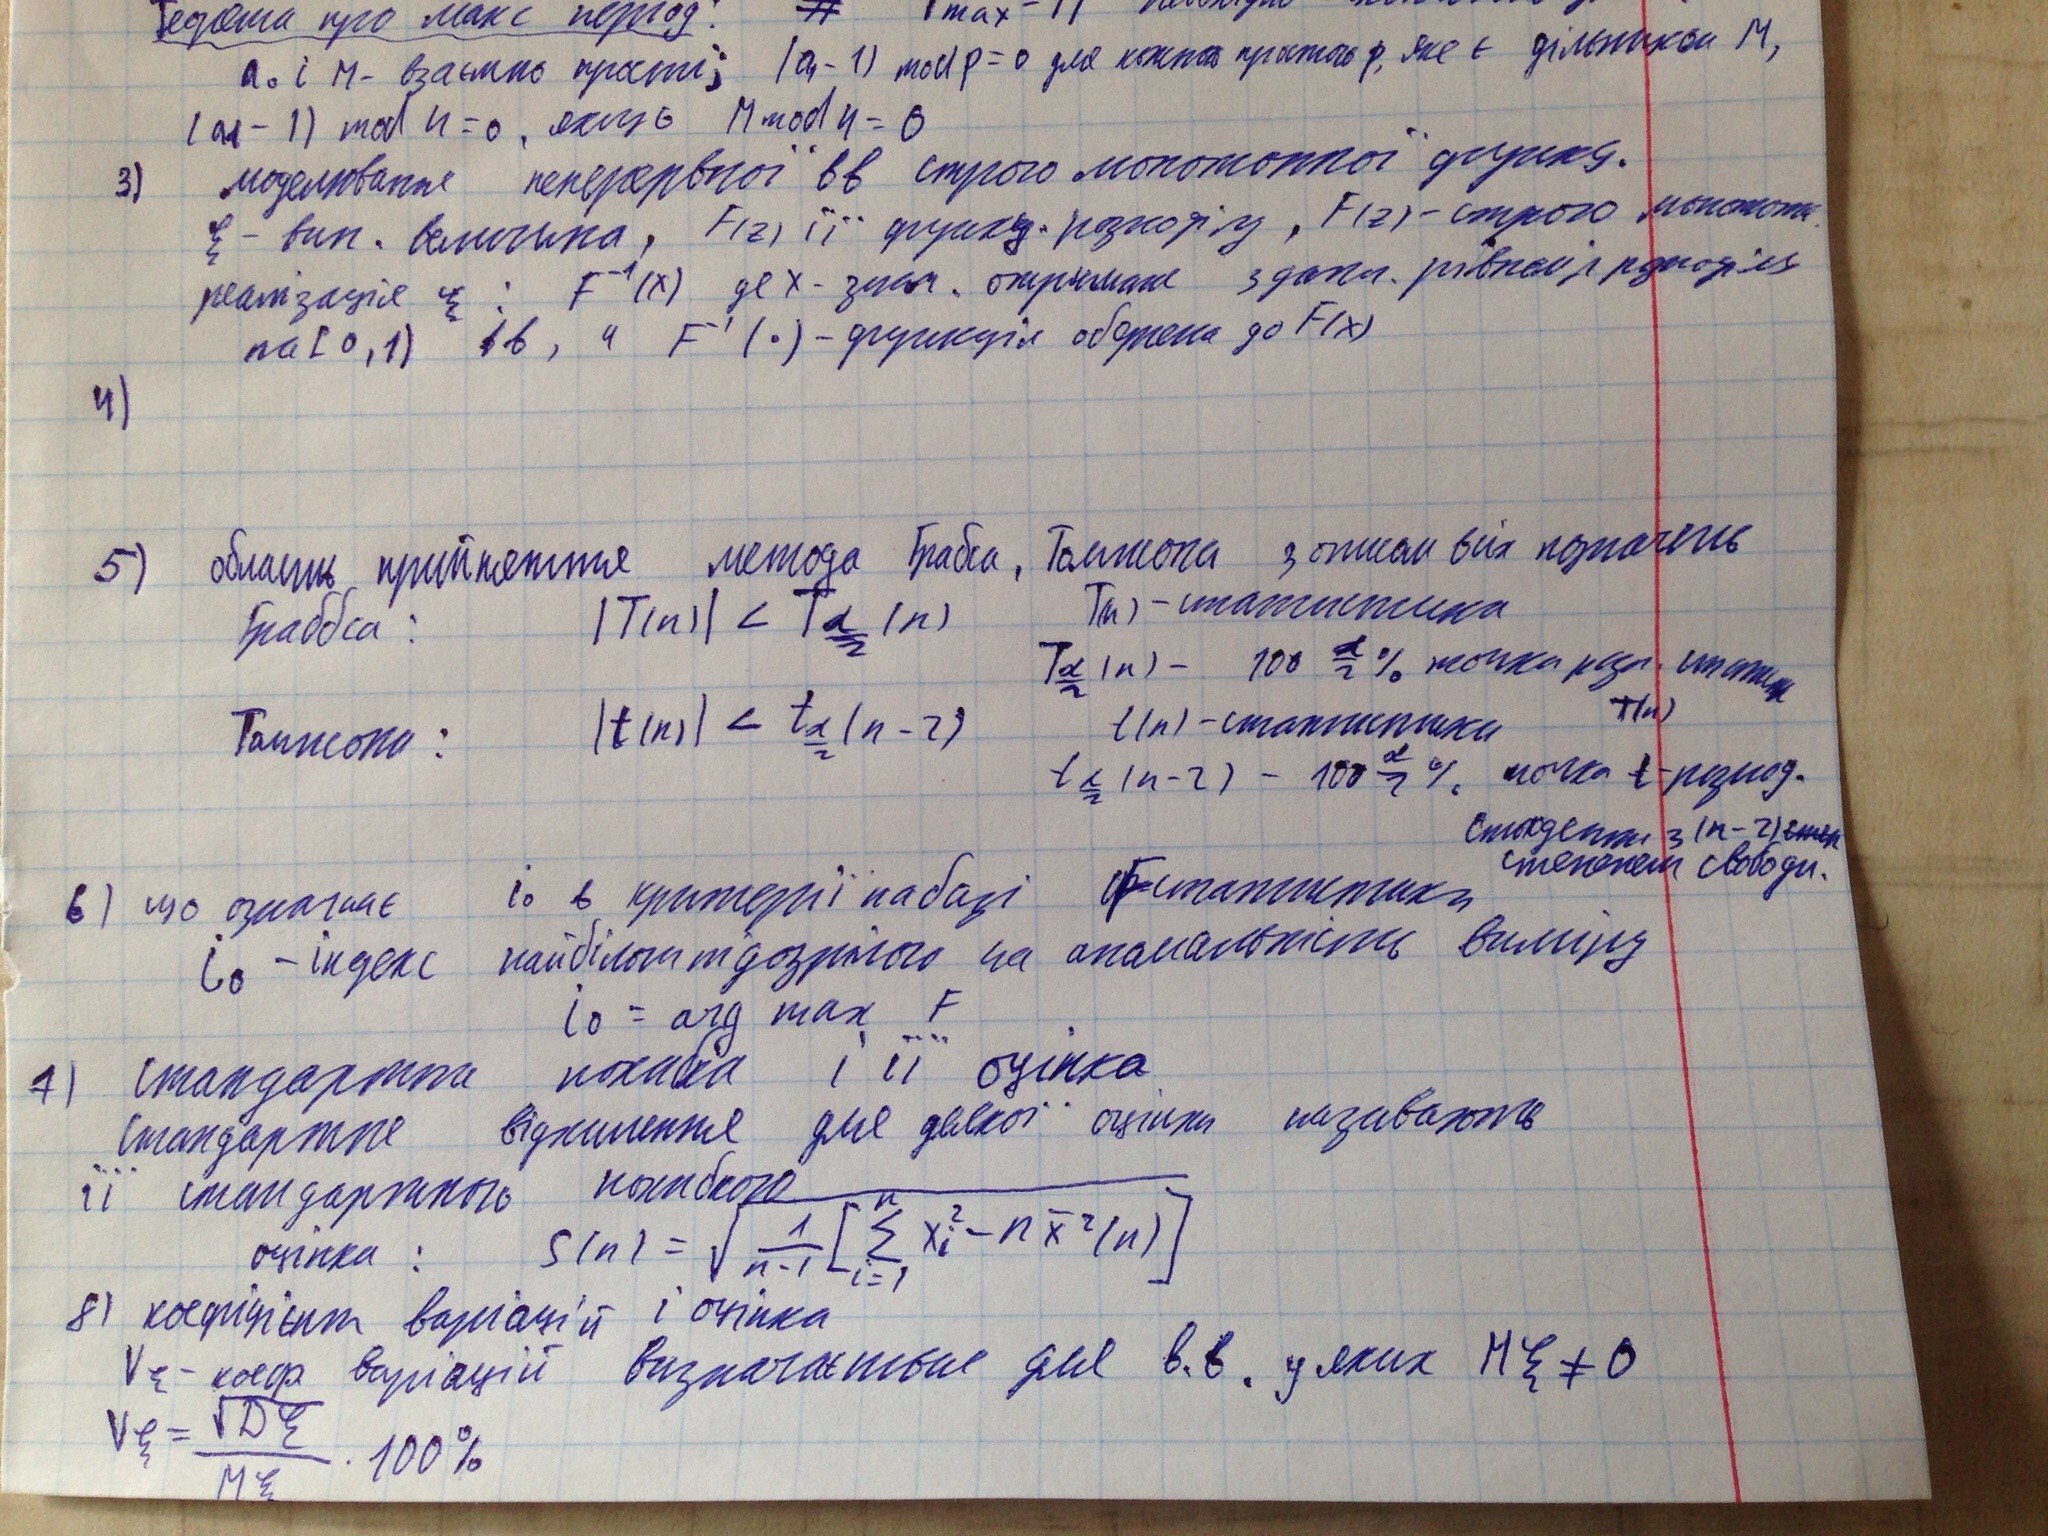 Теорема про макс період:
a₀ і M - взаємно прості; (a₁ - 1) mod p = 0 для кожного простого p, яке є дільником M,
(a₁ - 1) mod 4 = 0, якщо M mod 4 = 0
3) моделювання неперервної вв строго монотонної функц.
ξ - вип. величина, F(z) її функц. розподілу, F(z) - строго монотон.
реалізація ξ : F⁻¹(x) де x - знач. отримане з дат. рівномір розподілу
на [0, 1) вв, а F⁻¹(·) - функція обернена до F(x)
4)
5) область прийняття метода Грабса, Томпсона з описом всіх позначень
Граббса : |T(n)| < T_{α/2} (n) T(n) - статистика
T_{α/2} (n) - 100 α/2 % точка розп. статист
T(n)
Томпсона : |t(n)| < t_{α/2} (n - 2) t(n) - статистика
t_{α/2} (n - 2) - 100 α/2 % точка t-розпод.
Стьюдента з (n - 2)
степенем свободи.
6) що означає i₀ в критерії на базі F-статистики
i₀ - індекс найбільш підозрілого на аномальність виміру
i₀ = arg max F
7) Стандартна похибка і її оцінка
Стандартне відхилення для деякої оцінки називають
її стандартною похибкою
оцінка : S(n) = √(1/(n-1) [∑_{i=1}^{n} x_i² - n x̄²(n)])
8) коефіцієнт варіацій і оцінка
V_ξ - коеф варіацій визначається для в.в. у яких Mξ ≠ 0
V_ξ = √Dξ / Mξ · 100%